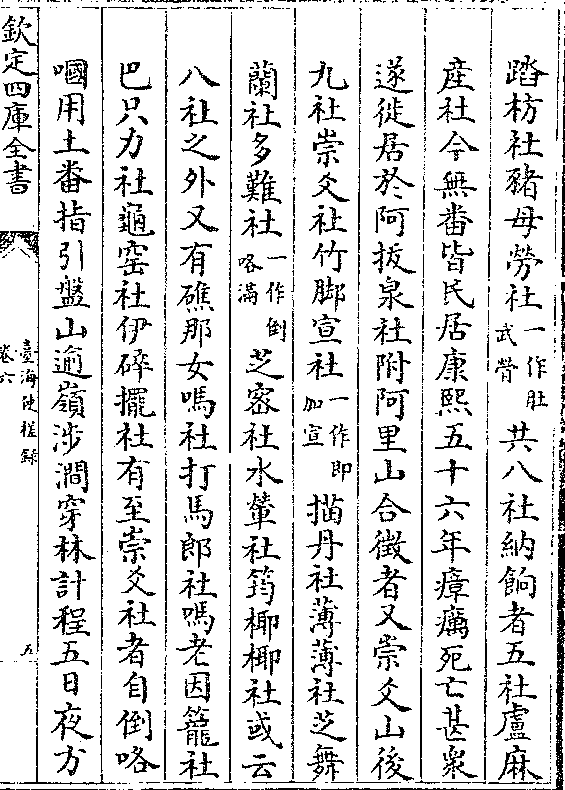 踏枋社豬母勞社一作肚武膋共八社納餉者五社盧麻
產社今無番皆民居康熙五十六年瘴癘死亡甚衆
遂徙居於阿拔泉社附阿里山合徵者又崇爻山後
九社崇爻社竹脚宣社一作即加宣描丹社薄薄社芝舞
蘭社多難社一作倒咯滿芝密社水輦社筠椰椰社或云
八社之外又有礁那女嗎社打馬郎社嗎老因籠社
巴只力社龜窑社伊碎擺社有至崇爻社者自倒咯
嘓用土番指引盤山逾嶺涉澗穿林計程五日夜方
欽定四庫全書
臺海使槎錄
卷六
五